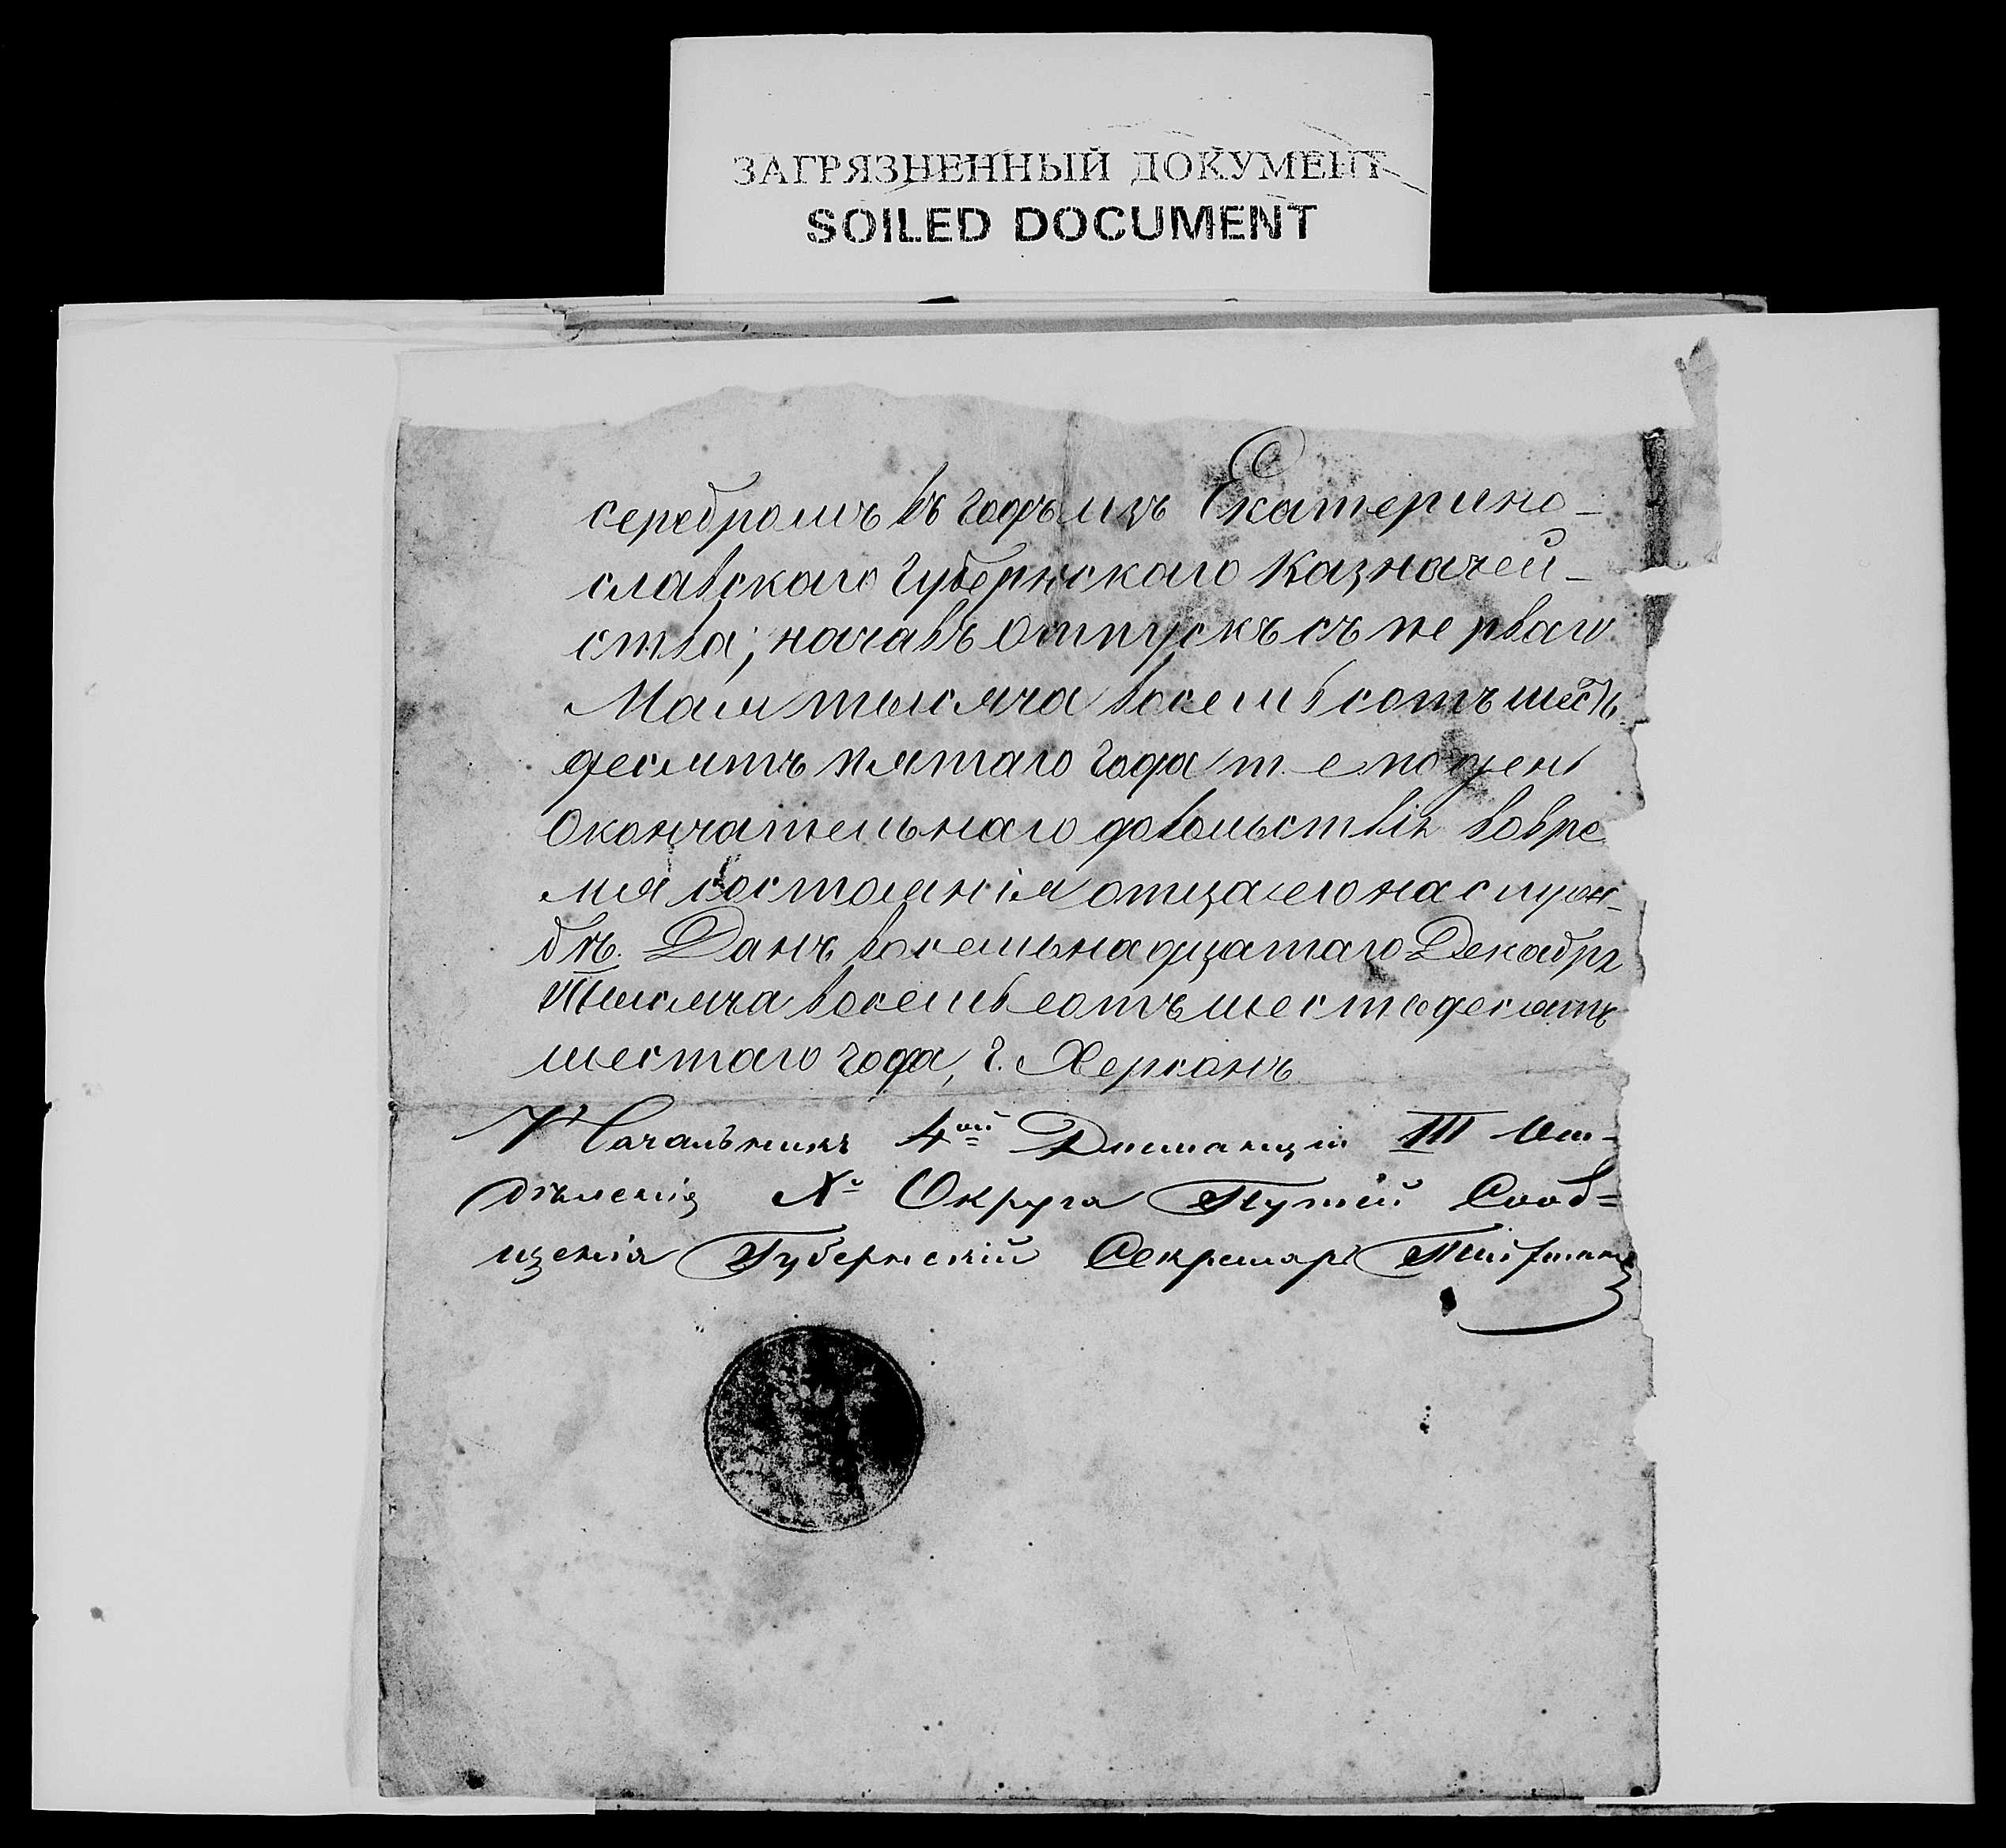 ЗАГРЯЗНЕННЫЙ ДОКУМЕНТ
SOILED DOCUMENT
серебромъ въ годъ изъ Екатерино-
славскаго Губернскаго Казначей-
ства; начавъ отпускъ съ перваго
Мая тысяча восемьсотъ шесть
десятъ пятаго года т. е. по день
окончательнаго довольствія вовре
мя состоянія отца его на служ-
бѣ. Данъ восемьнадцатаго Декабря
Тысяча восемьсотъ шестьдесятъ
шестаго года, г. Херсонъ
Начальникъ 4ой Дистанціи III От-
дѣленія X Округа Путей Сооб=
щенія Губернскій Секретарь